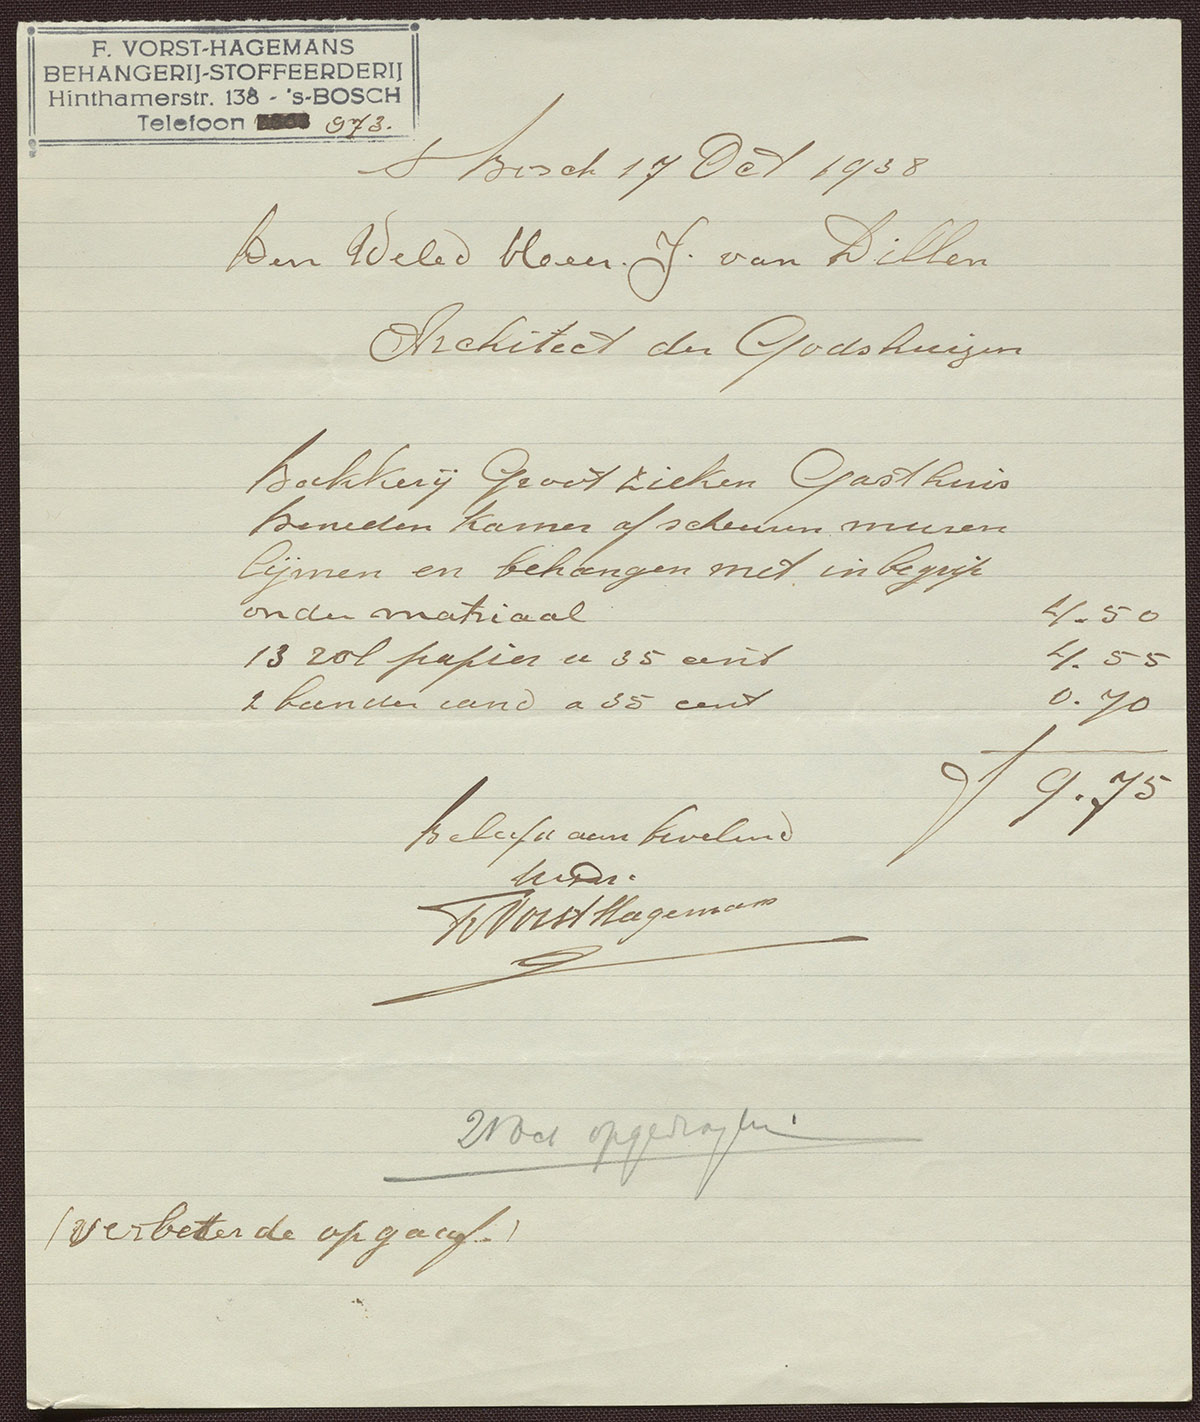 F. VORST-HAGEMANS
BEHANGERIJ-STOFFEERDERIJ
Hinthamerstr. 138 - 's-BOSCH
Telefoon 973.
s Bosch 17 Oct 1938
Den Weled Heer. J. van Dillen
Architect der Godshuizen
Bakkerij Groot Zieken Gasthuis
beneden kamer afscheuren muren
lijmen en behangen met inbegrip
onder matriaal 4.50
13 rol papier a 35 cent 4.55
2 banden rand a 35 cent 0.70
f 9.75
Beleefd aan bevelend
F Vorst Hagemans
21 Oct opgedragen.
(verbeterde opgaaf.)